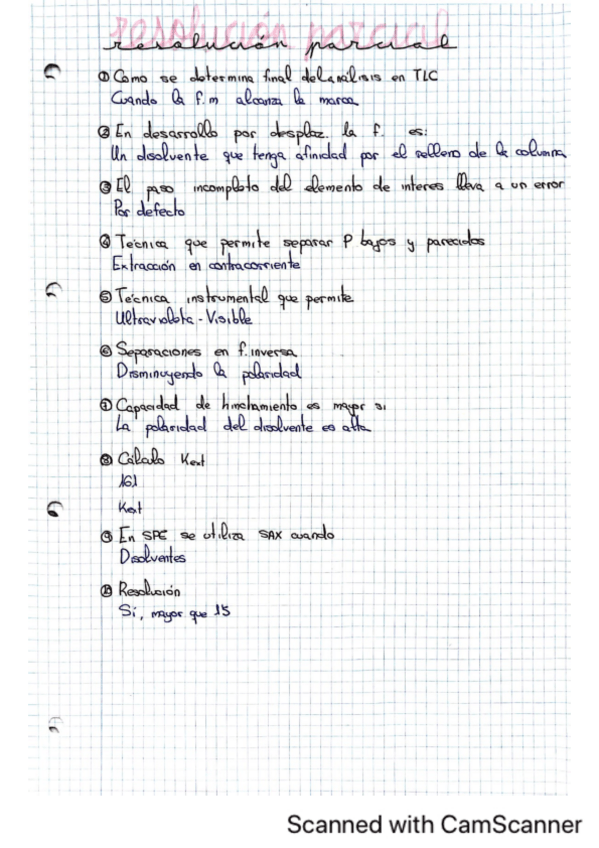 resolución parcial
① Como se determina final del análisis en TLC
Cuando la f.m alcanza la marca
② En desarrollo por desplaz. la f. es:
Un disolvente que tenga afinidad por el relleno de la columna
③ El paso incompleto del elemento de interes lleva a un error
Por defecto
④ Técnica que permite separar P bajos y parecidos
Extracción en contracorriente
⑤ Técnica instrumental que permite
Ultravioleta - Visible
⑥ Separaciones en f. inversa
Disminuyendo la polaridad
⑦ Capacidad de hinchamiento es mayor si
La polaridad del disolvente es alta
⑧ Cálculo Kext
161
Kext
⑨ En SPE se utiliza SAX cuando
Disolventes
⑩ Resolución
Si, mayor que 15
Scanned with CamScanner